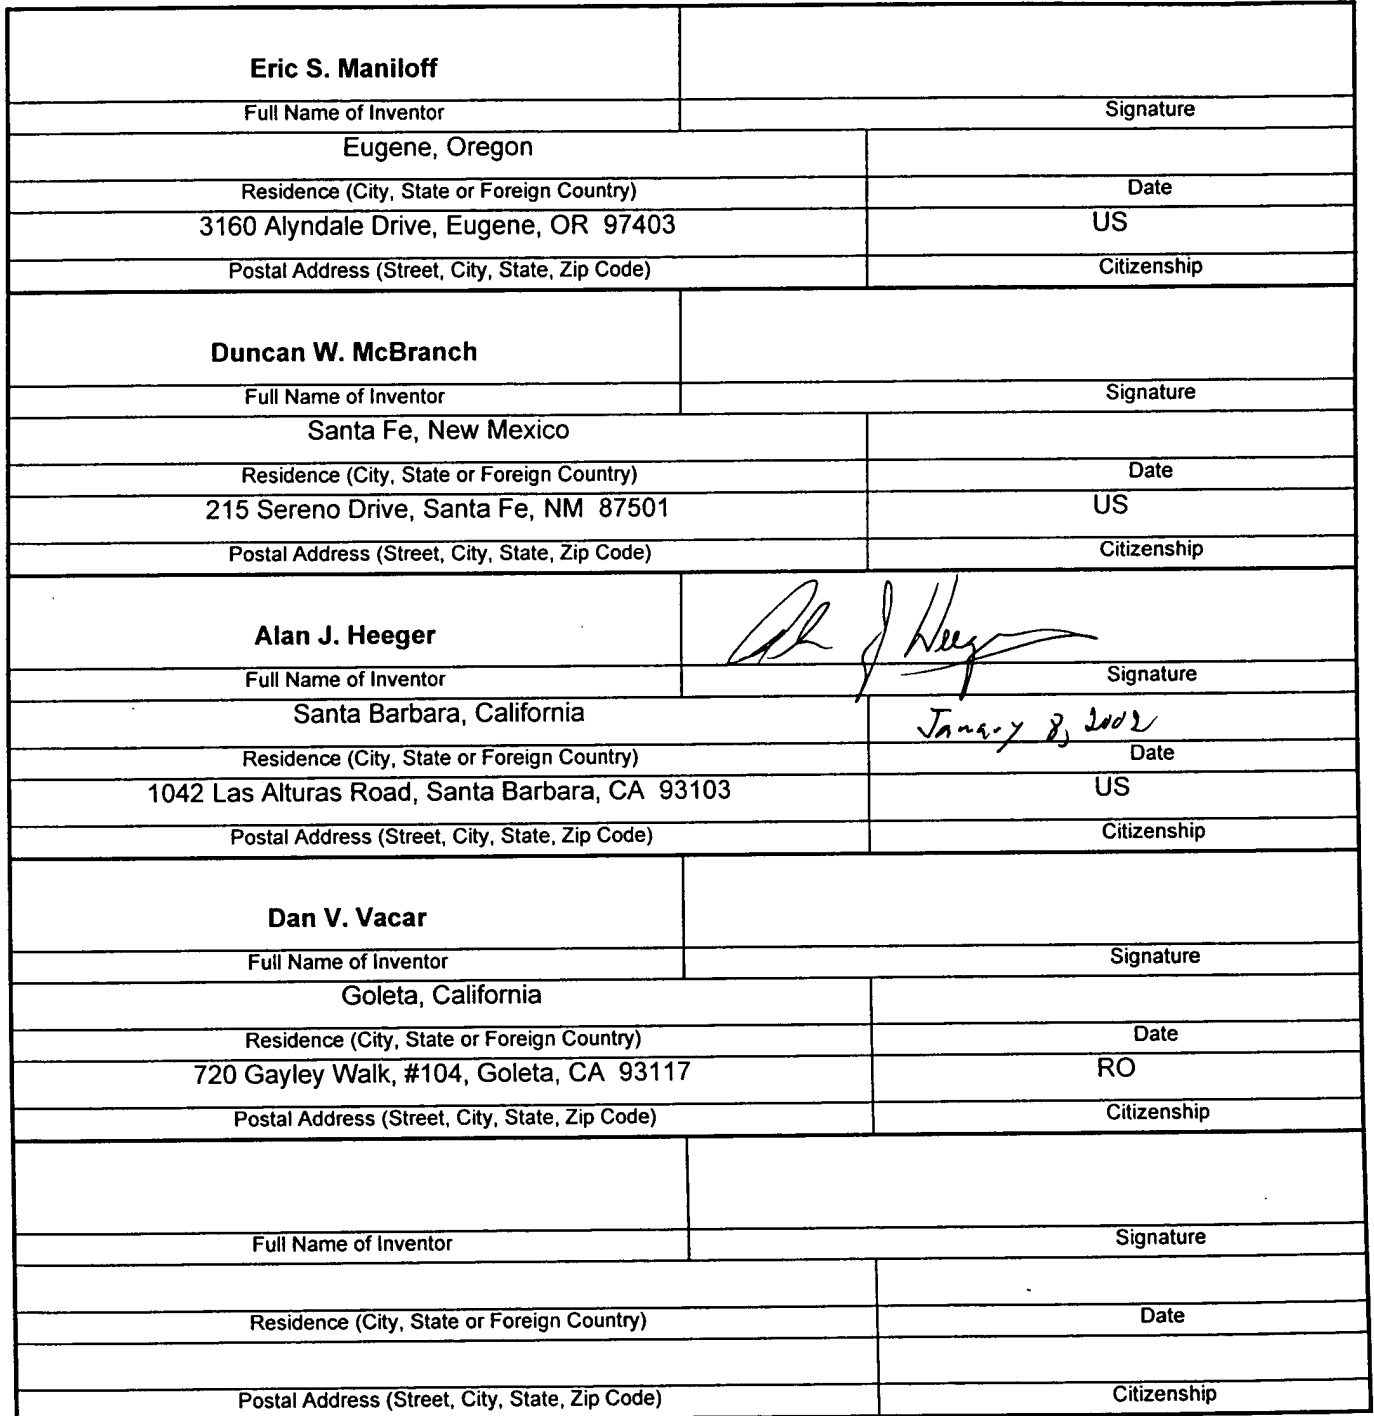 Eric S. Maniloff
Full Name of Inventor Signature
Eugene, Oregon
Residence (City, State or Foreign Country) Date
3160 Alyndale Drive, Eugene, OR 97403 US
Postal Address (Street, City, State, Zip Code) Citizenship
Duncan W. McBranch
Full Name of Inventor Signature
Santa Fe, New Mexico
Residence (City, State or Foreign Country) Date
215 Sereno Drive, Santa Fe, NM 87501 US
Postal Address (Street, City, State, Zip Code) Citizenship
Alan J. Heeger Alan J Heeger
Full Name of Inventor Signature
Santa Barbara, California January 8, 2002
Residence (City, State or Foreign Country) Date
1042 Las Alturas Road, Santa Barbara, CA 93103 US
Postal Address (Street, City, State, Zip Code) Citizenship
Dan V. Vacar
Full Name of Inventor Signature
Goleta, California
Residence (City, State or Foreign Country) Date
720 Gayley Walk, #104, Goleta, CA 93117 RO
Postal Address (Street, City, State, Zip Code) Citizenship
Full Name of Inventor Signature
Residence (City, State or Foreign Country) Date
Postal Address (Street, City, State, Zip Code) Citizenship